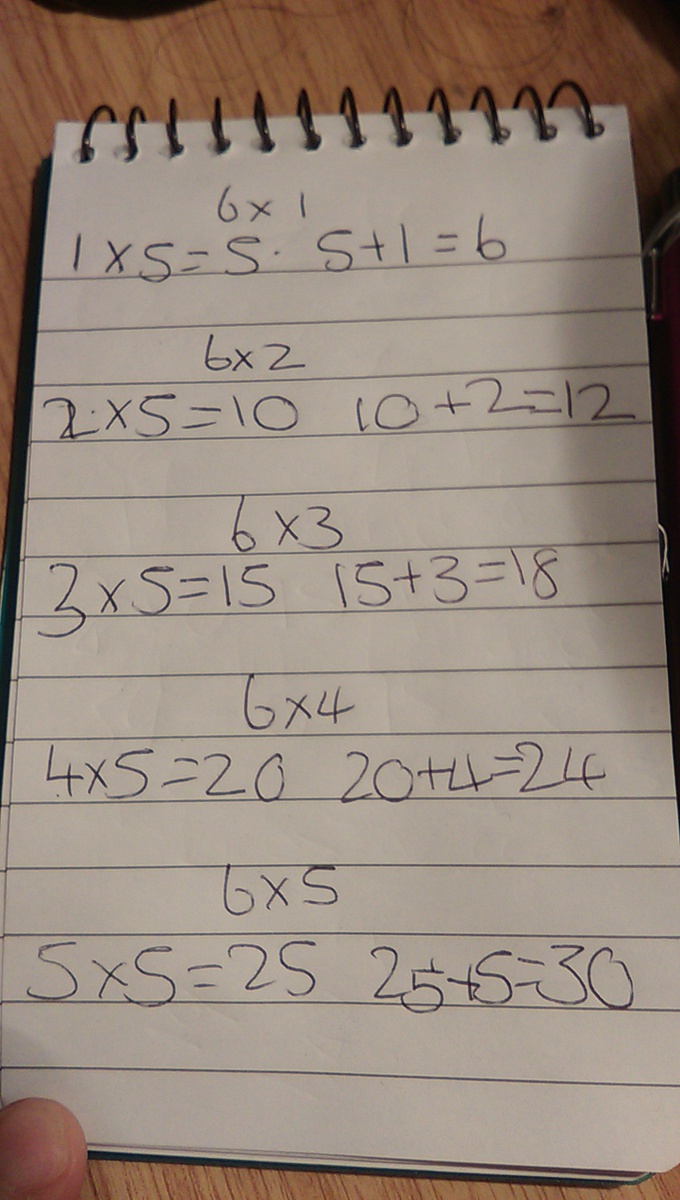 6 x 1
1 x 5 = 5. 5 + 1 = 6
6 x 2
2 x 5 = 10 10 + 2 = 12
6 x 3
3 x 5 = 15 15 + 3 = 18
6 x 4
4 x 5 = 20 20 + 4 = 24
6 x 5
5 x 5 = 25 25 + 5 = 30